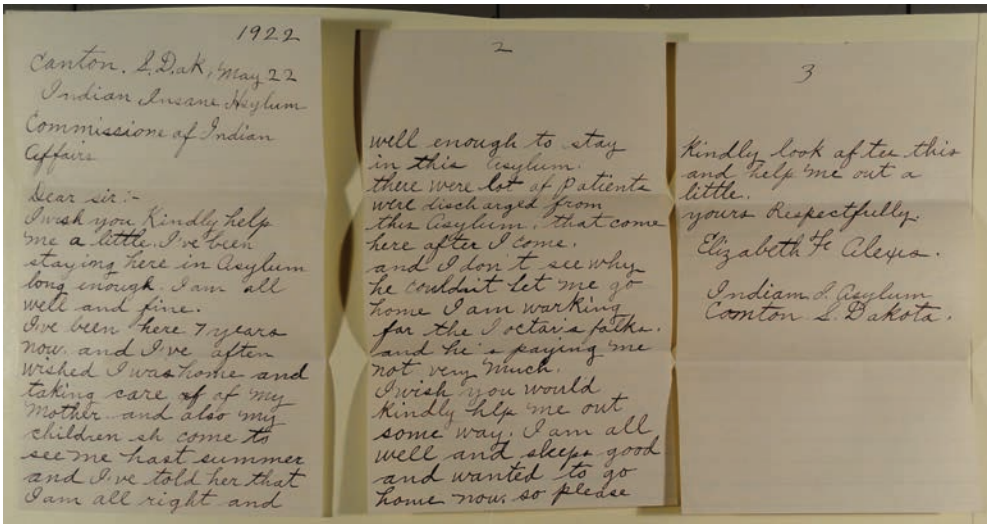 1922
Canton. S. Dak, May 22
Indian Insane Asylum
Commissione of Indian
Affairs
Dear sir:-
I wish you Kindly help
me a little. I've been
staying here in Asylum
long enough. I am all
well and fine.
I've been here 7 years
now. and I've often
wished I was home and
taking care of of my
Mother and also my
children sh come to
see me hast summer
and I've told her that
I am all right and
2
well enough to stay
in this asylum.
there were lot of patients
were discharged from
this Asylum, that come
here after I come.
and I don't see why
he couldn't let me go
home I am warking
for the Joctar's folks.
and he's paying me
not very much.
I wish you would
Kindly help me out
some way. I am all
well and sleeps good
and wanted to go
home now. so please
3
Kindly look aftee this
and help me out a
little.
yours Respectfully.
Elizabeth Alexis.
Indiam I. Asylum
Comton S. Dakota.